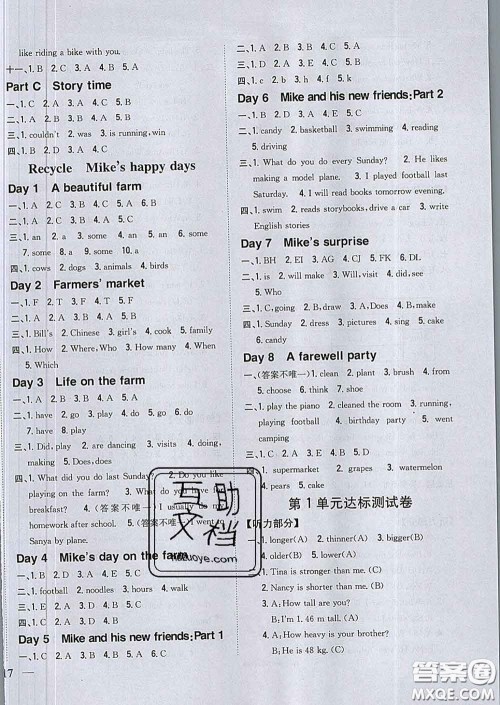 like riding a bike with you.
十一、1. B 2. C 3. B 4. C 5. A
Part C Story time
一、1. C 2. A 3. A 4. C 5. B
二、1. B 2. A 3. A 4. C
三、1. couldn't 2. was 3. is running, win
四、1. B 2. D 3. A 4. C
Recycle Mike's happy days
Day 1 A beautiful farm
一、1. A 2. B 3. B 4. A 5. A 6. B
二、1. C 2. A 3. B 4. C 5. A
三、1. an 2. a 3. some 4. an 5. an 6. some
7. some 8. a 9. a 10. some
四、1. cows 2. dogs 3. animals 4. birds
Day 2 Farmers' market
一、1. F 2. T 3. F 4. T 5. F
二、1. Bill's 2. Chinese 3. girl's 4. cook 5. family
三、1. How 2. Where, Who 3. How many 4. When
5. Which
Day 3 Life on the farm
一、1. C 2. A 3. B 4. A 5. C
二、1. have 2. go 3. do 4. go 5. do 6. have
7. go
三、1. Did, play 2. are dancing 3. visits 4. doing
5. Does, does
四、1. What did you do last Sunday?
breakfast? 3. (答案不唯一) I usually do my
homework after school.
Sanya by plane.
Day 4 Mike's day on the farm
一、1. B 2. A 3. D 4. C
二、1. football 2. noodles 3. hours 4. walk
三、1. B 2. A 3. B 4. C 5. C
四、1. B 2. D 3. A 4. C
Day 5 Mike and his new friends: Part 1
一、1. C 2. B 3. A 4. B 5. B
17
二、1. A 2. B 3. C 4. B 5. A
三、1. B 2. D 3. A 4. C
四、1. c 2. f 3. b 4. k 5. h
Day 6 Mike and his new friends: Part 2
一、1. B 2. C 3. A 4. A 5. B
二、1. candy 2. basketball 3. swimming 4. reading
5. driving
三、1. What do you do every Sunday? 2. He likes
making a model plane. 3. I played football last
Saturday. 4. I will read books tomorrow evening.
四、1. swim 2. read storybooks, drive a car 3. write
English stories
Day 7 Mike's surprise
一、1. BH 2. EI 3. AG 4. CJ 5. FK 6. DL
二、1. is 2. will 3. Will, visit 4. did, see
5. Who
三、1. C, going 2. D, draw 3. A, Does 4. B, make
四、1. sweep 2. dancing 3. picture 4. candy
Day 8 A farewell party
一、(答案不唯一) 1. can 2. plant 3. brush 4. from
5. choose 6. think 7. shoe
二、1. play the piano 2. cleaned the room 3. running,
playing football 4. playing football 5. my
birthday party
三、1. supermarket 2. grapes 3. watermelon
4. pears
第 1 单元达标测试卷
【听力部分】
一、1. longer(A) 2. thinner(A) 3. bigger(B)
4. older(B) 5. short(A)
二、1. Tina is stronger than me. (A)
2. Nancy is shorter than me. (B)
3. A: How tall are you?
B: I'm 1.46 m tall. (A)
4. A: How heavy is your brother?
B: He is 48 kg. (B)
互助文档
答案圈
MXQE.COM